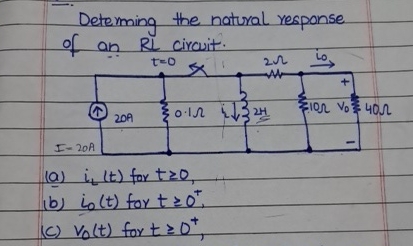 Determing the natural response
of an RL circuit.
t=0
2Ω
io
20A
0.1Ω
iL
2H
10Ω
+
Vo
-
40Ω
I-20A
(a) iL(t) for t≥0,
(b) io(t) for t≥0⁺,
(c) Vo(t) for t≥0⁺,